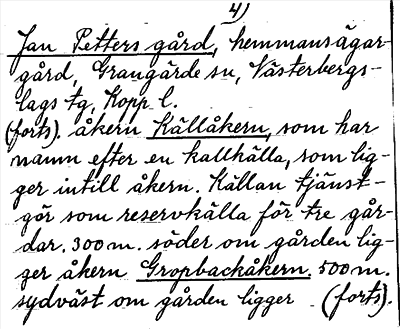 4)
Jan Petters gård, hemmansägar-
gård, Grangärde sn, Västerbergs-
lags tg, Kopp. l.
(forts). åkern Källåkern, som har
namn efter en kallkälla, som lig-
ger intill åkern. Källan tjänst-
gör som reservkälla för tre går-
dar. 300 m. söder om gården lig-
ger åkern Gropbackåkern. 500 m.
sydväst om gården ligger (forts).